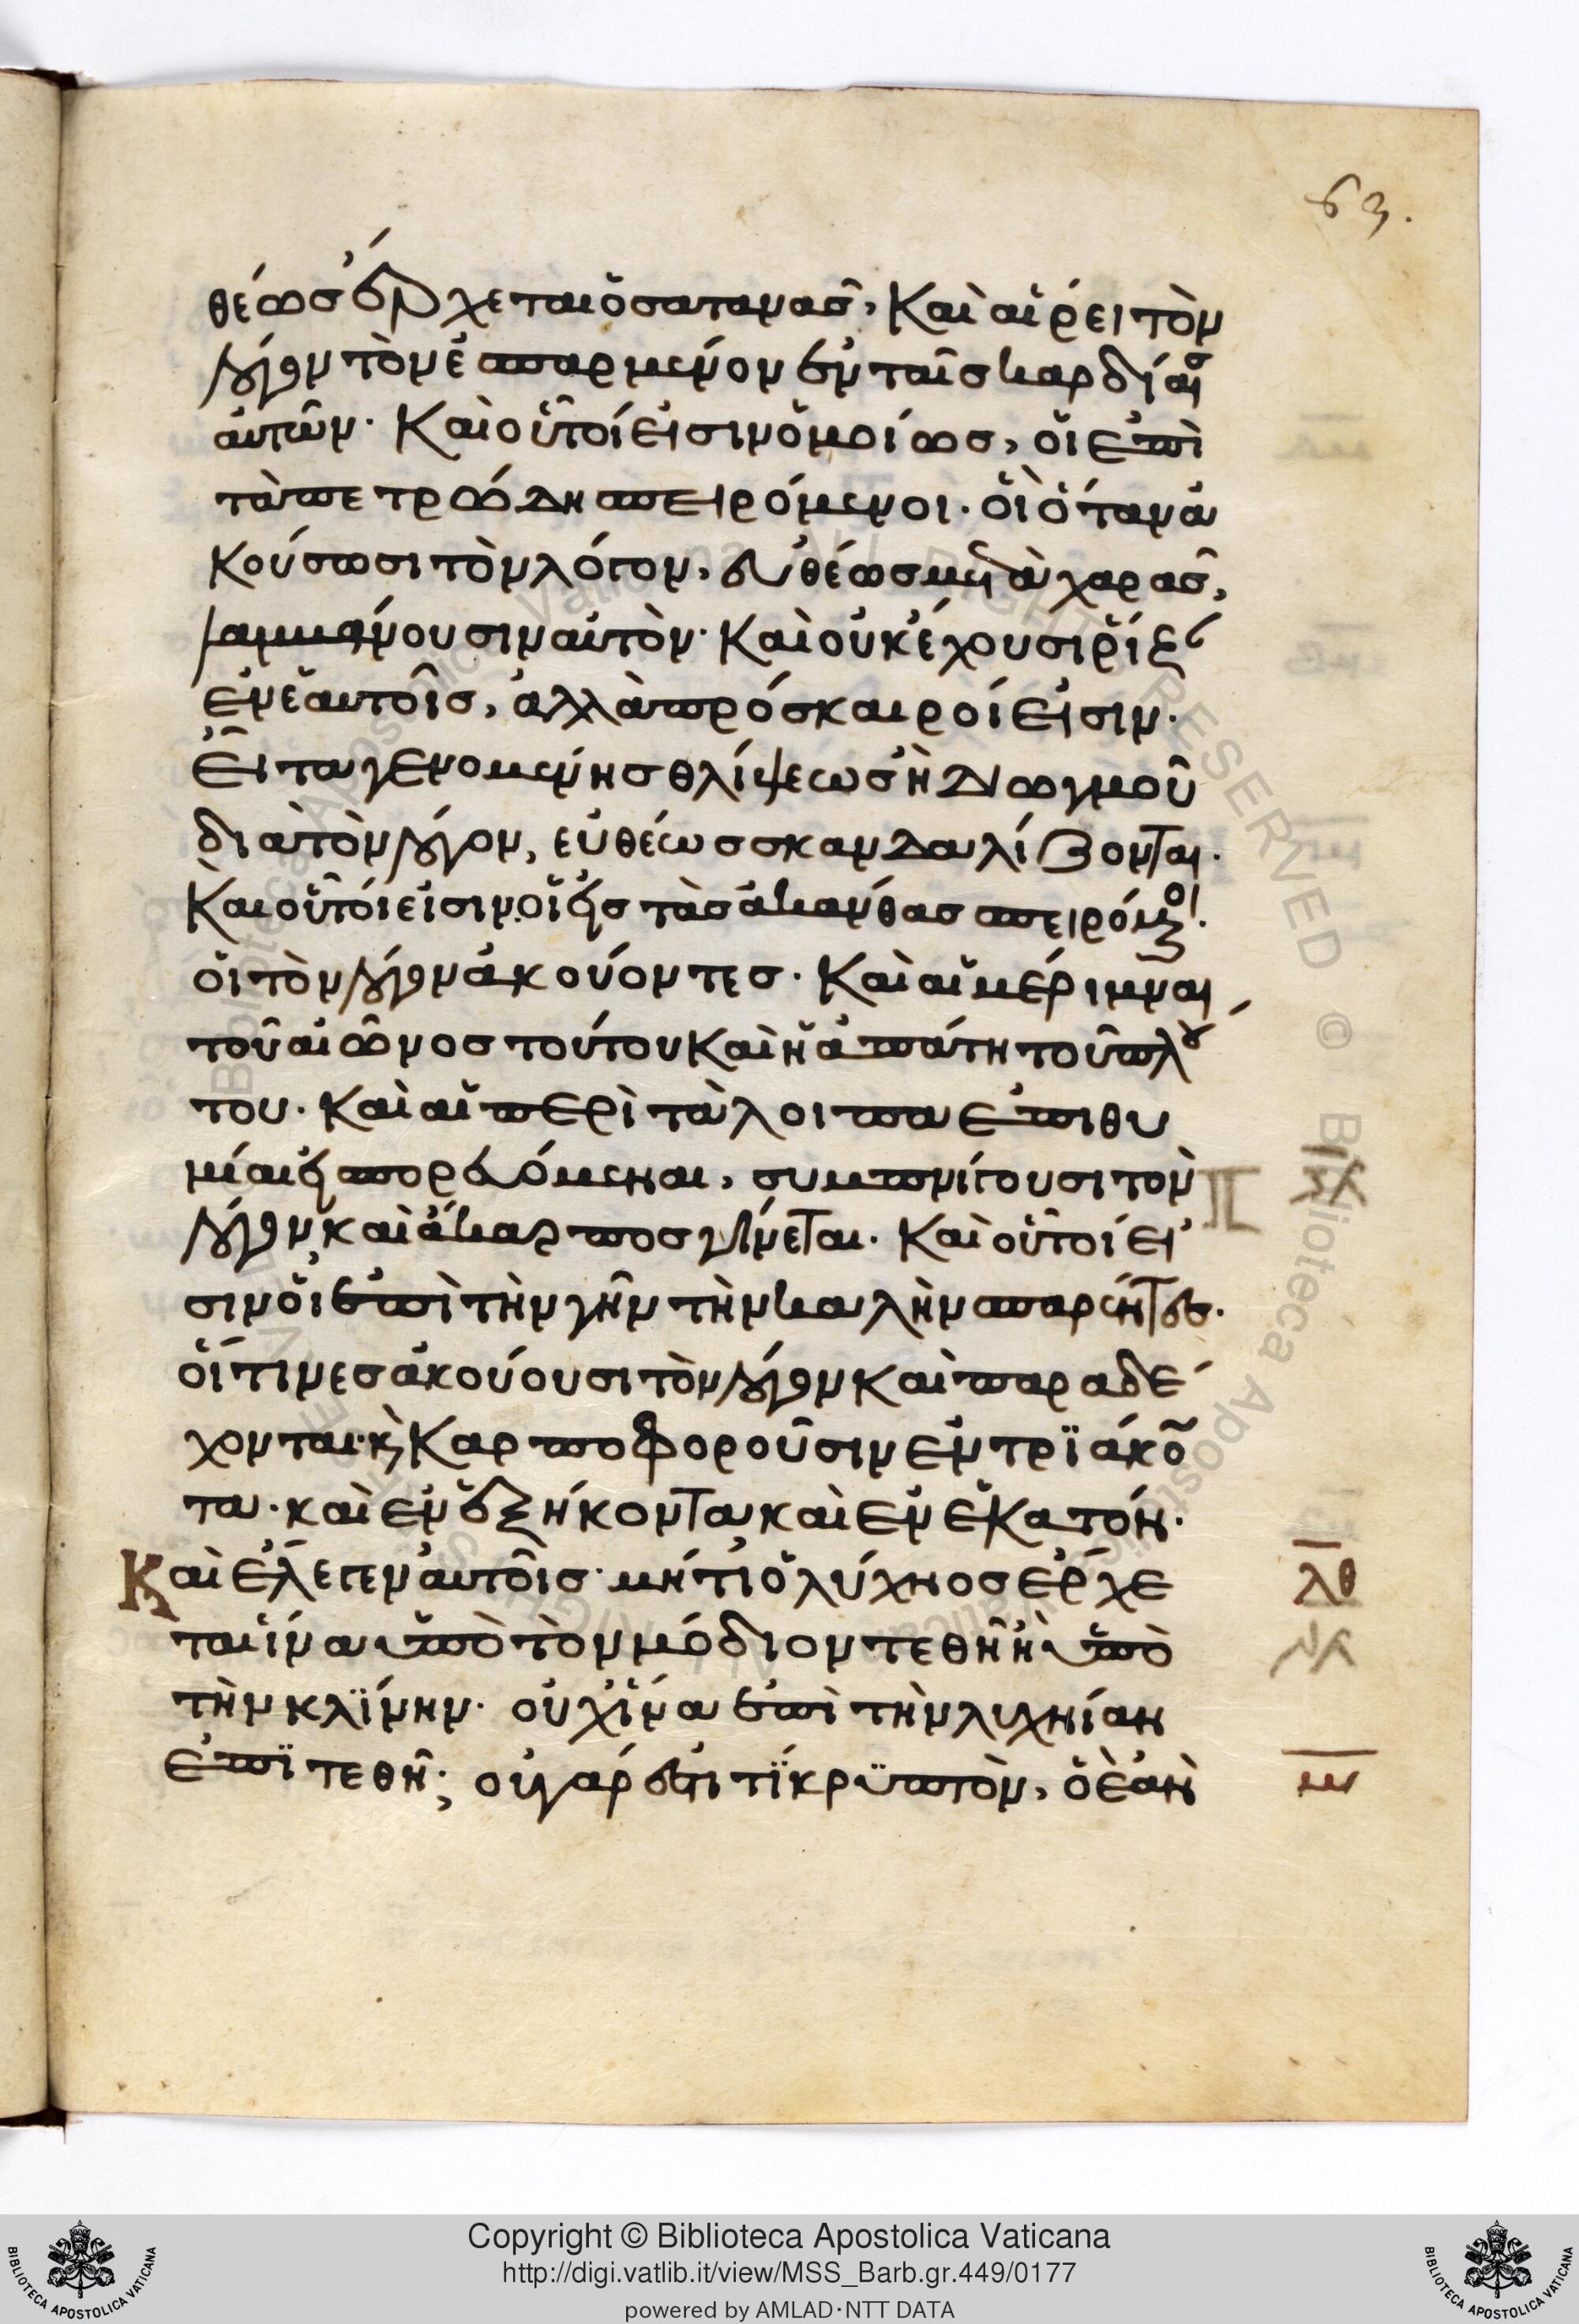 63.
θέωσ ἔρχεται ὁ σατανασ̑, Καὶ αἴρει τὸν
λόγον τὸν ἐσπαρμένον ἐν ταῖσ καρδίαισ
αὐτῶν· Καὶ οὗτοί εἰσιν ὁμοίωσ, οἱ ἐπὶ
τὰ πετρώδη σπειρόμενοι· οἳ ὅταν ἀ
κούσωσι τὸν λόγον, εὐθέωσ μετὰ χαρασ̑,
λαμβάνουσιν αὐτὸν· Καὶ οὐκ ἔχουσι ῥίζαν
ἐν ἑαυτοῖσ, ἀλλὰ πρόσκαιροί εἰσιν·
εἶτα γενομένησ θλίψεωσ ἢ διωγμοῦ
διὰ τὸν λόγον, εὐθέωσ σκανδαλίζονται·
Καὶ οὗτόι εἰσιν· οἱ εἰσ τὰσ ἀκάνθασ σπειρόμενοι·
οἱ τὸν λόγον ἀκούοντεσ· Καὶ αἱ μέριμναι
τοῦ αἰῶνοσ τούτου Καὶ ἡ ἀπάτη τοῦ πλού
του· Καὶ αἱ περὶ τὰ λοιπα ἐπιθυ
μίαι εἰσπορευόμεναι, συμπνίγουσι τὸν
λόγον, καὶ ἄκαρποσ γίνεται· Καὶ οὗτοί εἰ
σιν οἱ ἐπὶ τὴν γῆν τὴν καλὴν σπαρέντεσ·
οἵτινεσ ἀκούουσι τὸν λόγον Καὶ παραδέ
χονται· κὶ Καρποφοροῦσιν ἐν τριάκον
τα· καὶ ἐν ἑξήκοντα καὶ ἐν ἑκατόν·
Καὶ ἔλεγεν αὐτοῖσ· μήτι ὁ λύχνοσ ἔρχε
ται ἵνα ὑπὸ τὸν μόδιον τεθῆ ἢ ὑπὸ
τὴν κλΐνην· οὐχ ἵνα ἐπὶ τὴν λυχνίαν
ἐπϊτεθῆ; οὐ γάρ ἐστι τϊ κρϋπτὸν, ὃ ἐὰν
λθ
μ
Copyright © Biblioteca Apostolica Vaticana
http://digi.vatlib.it/view/MSS_Barb.gr.449/0177
powered by AMLAD·NTT DATA
BIBLIOTECA APOSTOLICA VATICANA
BIBLIOTECA APOSTOLICA VATICANA